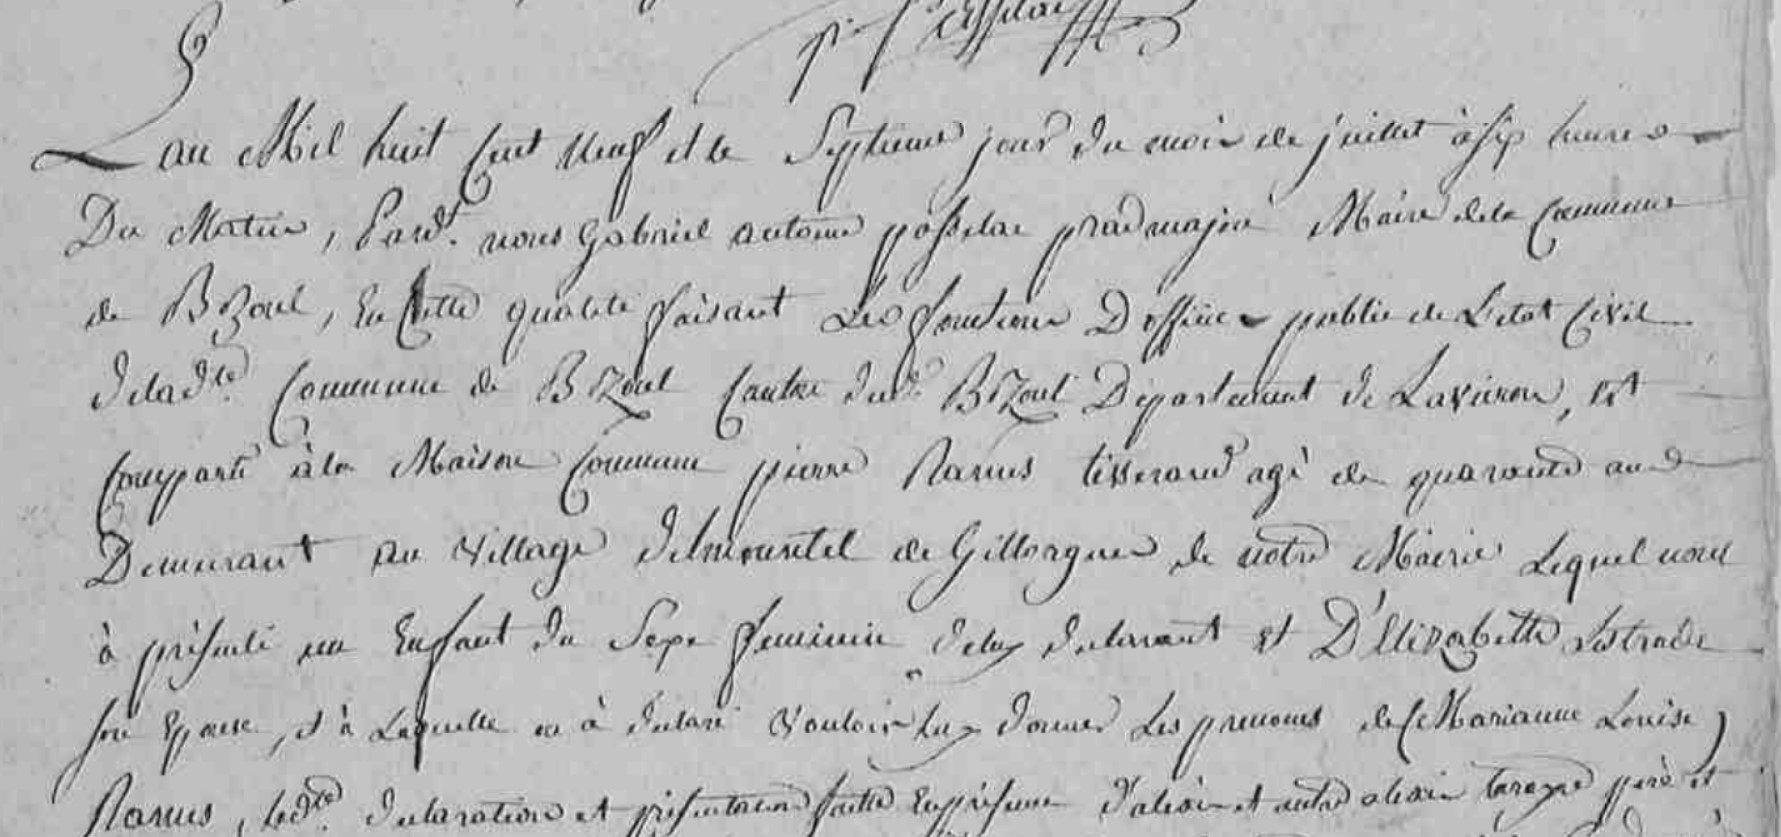 Lan Mil huit Cent Neuf et le Septieme jour du mois de juillet à six heures
Du Matin, Pard.t nous Gabriel antoine passelac pradmajou Maire de la Commune
de Bozoul, En Cette qualité faisant Les fonctions D'officie public de L'etat Civil
de lad.te Commune de Bozoul Canton dud.t Bozoul Département de Laveiron, est
Comparu à la Maison Commune pierre Ramus tisserand agé de quarante ans
Demeurant au village delmountel de Gillorgues de notre Mairie Lequel nous
à présenté un Enfant du Sexe feminin deluy declarant et D'Elizabeth Lestrade
son Epouse, et à Laquelle on à declaré Vouloir luy donner Les prenoms de Marianne Louise
Ramus, led.te declaration et présentation faitte En présence d'alexis et autre alexis tarayre père et